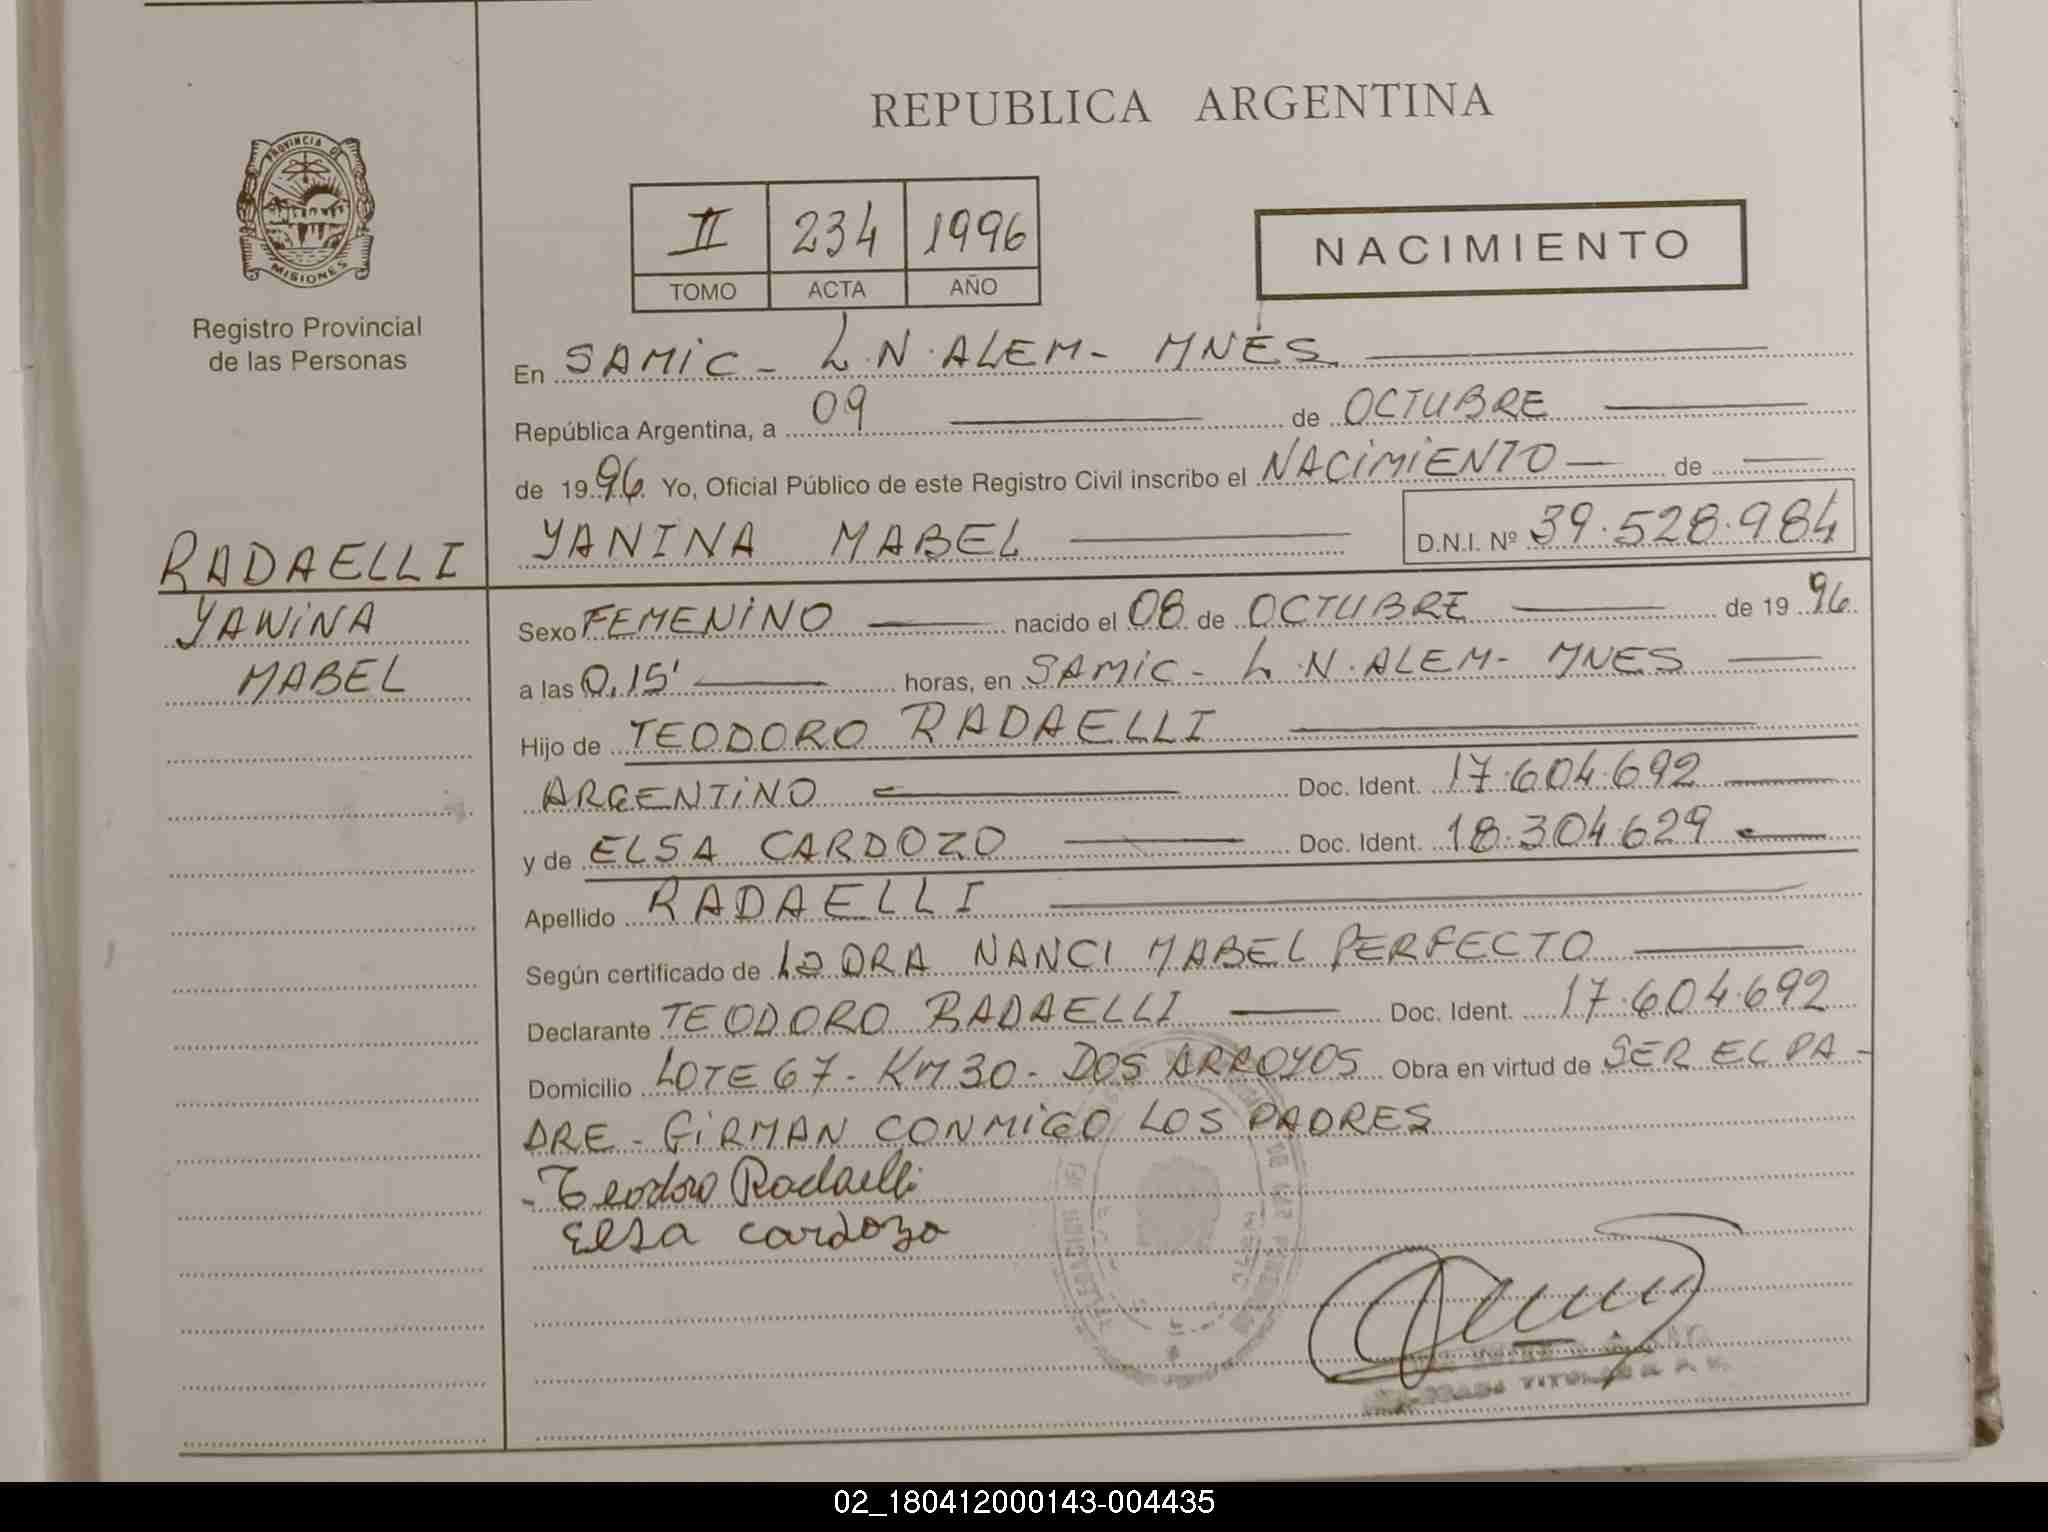 REPUBLICA ARGENTINA
PROVINCIA DE
MISIONES
Registro Provincial
de las Personas
II 234 1996
TOMO ACTA AÑO
NACIMIENTO
En SAMiC - L.N.ALEM - MNES
República Argentina, a 09 de OCTUBRE
de 1996 Yo, Oficial Público de este Registro Civil inscribo el NACiMiENTO de
YANINA MABEL D.N.I. Nº 39.528.984
RADAELLI
YANiNA
MABEL
Sexo FEMENiNO nacido el 08 de OCTUBRE de 1996
a las 0,15' horas, en SAMiC - L.N.ALEM - MNES
Hijo de TEODORO RADAELLI
ARGENTiNO Doc. Ident. 17.604.692
y de ELSA CARDOZO Doc. Ident. 18.304.629
Apellido RADAELLI
Según certificado de LA DRA NANCI MABEL PERFECTO
Declarante TEODORO RADAELLI Doc. Ident. 17.604.692
Domicilio LOTE 67 - KM 30 - DOS ARROYOS Obra en virtud de SER EL PA -
DRE - FiRMAN CONMiGO LOS PADRES
- Teodoro Radaelli
Elsa Cardozo
02_180412000143-004435